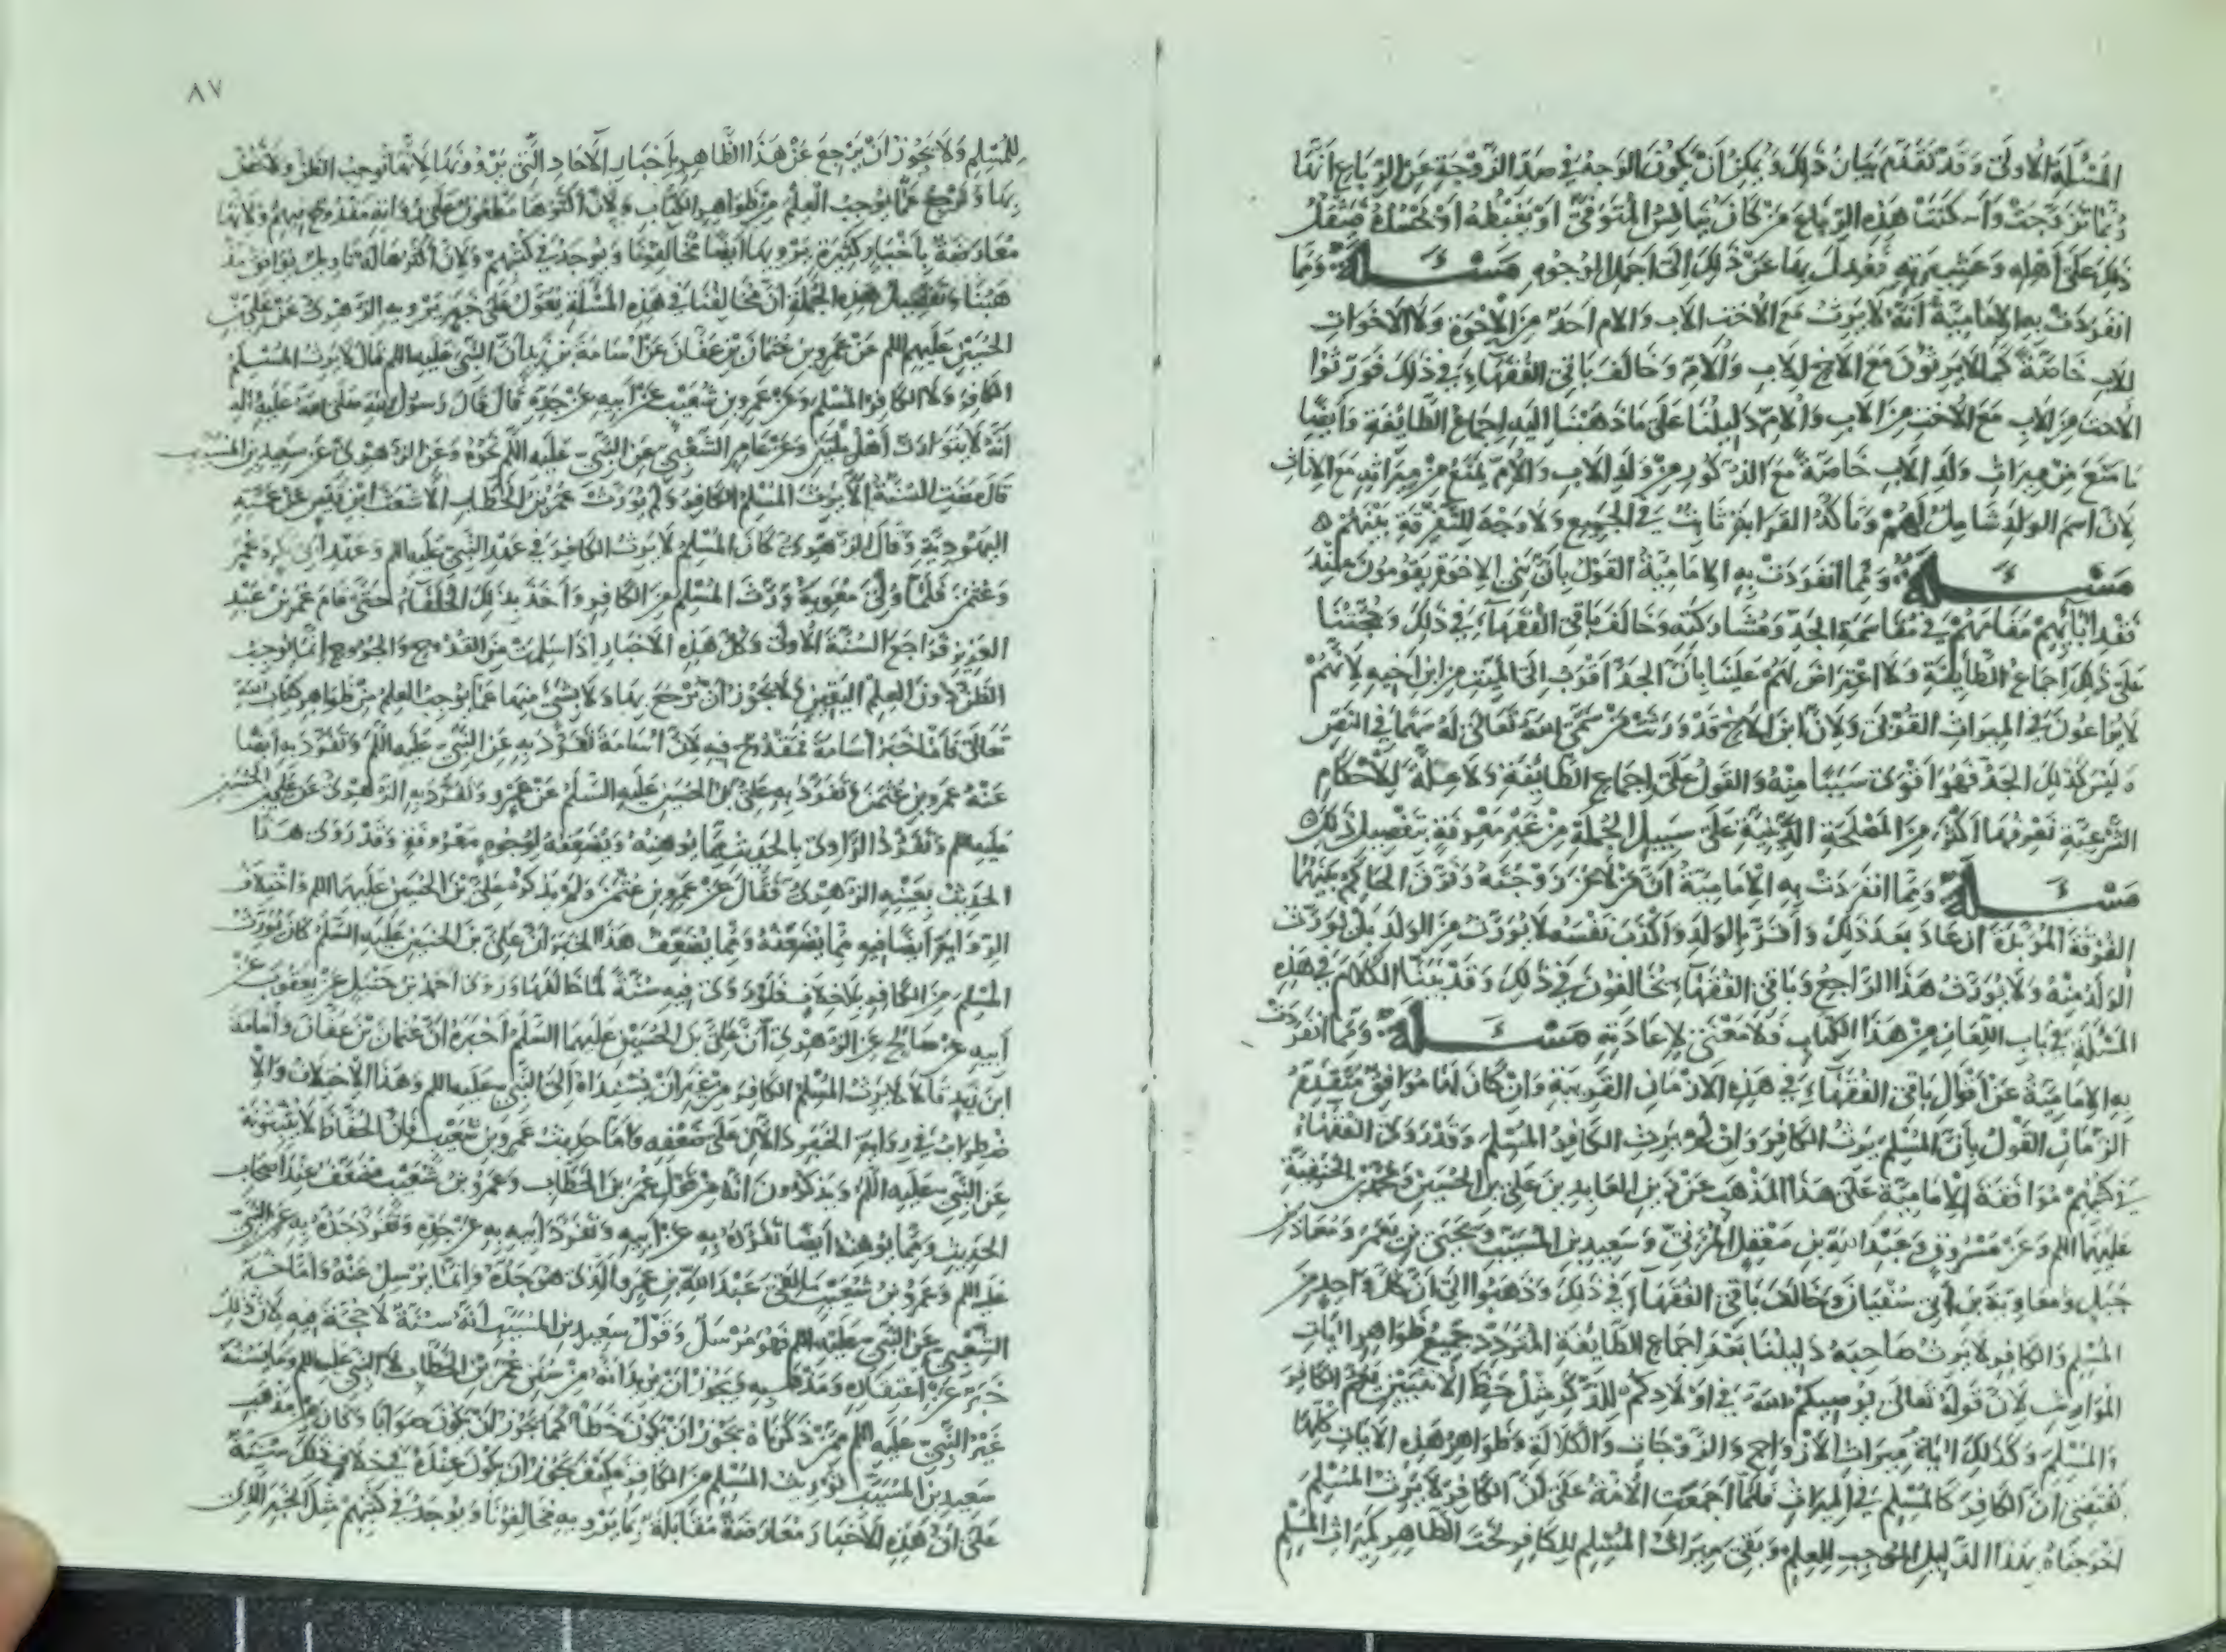 المسئلة الاولى وقد تقدم بيان ذلك ويمكن أن يكون الوجه في صد الزوجة عن الرباع أنها
ربما تزوجت وأسكنت هذه الرباع من كان ينافس المتوفى أو يغبطه أو يحسده فيثقل
ذلك على أهله وعشيرته فعدل بها عن ذلك الى أجمل الوجوه مسئلة ومما
انفردت به الإمامية أنه لا يرث مع الاخت للاب والام أحد من الإخوة والأخوات
للاب خاصة كما لا يرثون مع الاخ للاب والأم وخالف باقي الفقهاء في ذلك فورثوا
الاخت من الاب مع الاخت من الاب والأم دليلنا على ما ذهبنا اليه إجماع الطائفة وأيضا
ما منع من ميراث ولد الاب خاصة مع الذكور من ولد الاب والأم يمنع من ميراثه مع الاناث
لان اسم الولد شامل لهم وتأكد القرابة ثابت في الجميع ولا وجه للتفرقة بينهم
مسئلة ومما انفردت به الإمامية القول بأن بني الإخوة يقومون عند
فقد آبائهم مقامهم في مقاسمة الجد ومشاركته وخالف باقي الفقهاء في ذلك وحجتنا
على ذلك إجماع الطائفة ولا اعتراض لهم علينا بأن الجد أقرب الى الميت من ابن أخيه لانهم
لا يراعون في الميراث القربى ولان ابن الاخ قد ورث من سمى الله تعالى له سهما في النص
وليس كذلك الجد فهو أقوى سببا منه والقول على إجماع الطائفة ولا علة للأحكام
الشرعية نعرفها أكثر من المصلحة الدينية على سبيل الجملة من غير معرفة بتفصيل ذلك
مسئلة ومما انفردت به الإمامية أن من لاعن زوجته وفرق الحاكم بينهما
الفرقة المؤبدة ان عاد بعد ذلك وأقر بالولد وأكذب نفسه لا يورث من الولد بل يورث
الولد منه ولا يورث هذا الراجع وباقي الفقهاء يخالفون في ذلك وقد بينا الكلام في هذه
المسئلة في باب اللعان من هذا الكتاب فلا معنى لإعادته مسئلة ومما انفردت
به الإمامية عن أقوال باقي الفقهاء في هذه الازمان القريبة وان كان لها موافق متقدم
الزمان القول بأن المسلم يرث الكافر وان لم يرث الكافر المسلم وقد روى الفقهاء
في كتبهم موافقة الإمامية على هذا المذهب عن زين العابدين علي بن الحسين ومحمد بن الحنفية
عليهما السلم وعن مسروق وعبد الله بن مغفل المزني وسعيد بن المسيب ويحيى بن يعمر ومعاذ بن
جبل ومعاوية بن أبي سفيان وخالف باقي الفقهاء في ذلك وذهبوا الى أن كل واحد من
المسلم والكافر لا يرث صاحبه دليلنا بعد إجماع الطائفة المتردد جميع ظواهر آيات
المواريث لان قوله تعالى يوصيكم الله في أولادكم للذكر مثل حظ الأنثيين يعم الكافر
والمسلم وكذلك آية ميراث الأزواج والزوجات والكلالة وظواهر هذه الآيات كلها
تقتضي أن الكافر كالمسلم في الميراث فلما أجمعت الأمة على أن الكافر لا يرث المسلم
أخرجناه بهذا الدليل الموجب للعلم وبقي ميراث المسلم للكافر تحت الظاهر كميراث المسلم
٨٧
للمسلم ولا يجوز أن يرجع عن هذا الظاهر بأخبار الآحاد التي يروونها لانها توجب الظن ولا يخص
بها ولا يرجع عما يوجب العلم من ظواهر الكتاب ولان أكثرها مطعون على رواته مقدوح فيهم ولانها
معارضة بأخبار كثيرة يرويها أيضا مخالفونا ويوجد في كتبهم ولان أكثرها له تأويل يوافق مذ
هبنا وتفصيل هذه الجملة أن مخالفنا في هذه المسئلة يعول على خبر يرويه الزهري عن علي بن
الحسين عليهم السلم عن عمرو بن عثمان بن عفان عن أسامة بن زيد أن النبي عليه السلم قال لا يرث المسلم
الكافر ولا الكافر المسلم وعن عمرو بن شعيب عن أبيه عن جده قال قال رسول الله صلى الله عليه وآله
أنه لا يتوارث أهل ملتين وعن عامر الشعبي عن النبي عليه السلم نحوه وعن الزهري عن سعيد بن المسيب
قال مضت السنة ألا يرث المسلم الكافر ولم يورث عمر بن الخطاب الأشعث ابن قيس عن عمته
اليهودية وقال الزهري كان المسلم لا يرث الكافر في عهد النبي عليه السلم وعهد أبي بكر وعمر
وعثمن فلما ولى معوية ورث المسلم من الكافر وأخذ بذلك الخلفاء حتى قام عمر بن عبد
العزيز فراجع السنة الأولى وكل هذه الأخبار اذا سلمت من القدوح والجروح انما توجب
الظن دون العلم اليقين ولا يجوز أن يرجع بها ولا بشئ منها عما يوجب العلم من ظواهر كتاب الله
تعالى فأما خبر أسامة فمقدوح فيه لان أسامة تفرد به عن النبي عليه السلم وتفرد به أيضا
عنه عمرو بن عثمن وتفرد به علي بن الحسين عليه السلم عن عمرو وتفرد به الزهري عن علي بن الحسين
عليهم السلم وتفرد الراوي بالحديث مما يوهنه ويضعفه لوجوه معروفة وقد روى هذا
الحديث بعينه الزهري فقال عن عمرو بن عثمن ولم يذكر علي بن الحسين عليهما السلم واختلاف
الرواية أيضا فيه مما يضعفه ومما يضعف هذا الخبر أن علي بن الحسين عليه السلم كان يورث
المسلم من الكافر بلا خلاف فلو روى فيه سنة لما خالفها وروى أحمد بن حنبل عن يعقوب عن
أبيه عن صالح عن الزهري أن علي بن الحسين عليهما السلم أخبره أن عثمان بن عفان وأسامة
ابن زيد قالا لا يرث المسلم الكافر من غير أن يسنداه الى النبي عليه السلم وهذا الاختلاف والا
ضطراب في رواية الخبر دالان على ضعفه وأما حديث عمرو بن شعيب فان الحفاظ لا يثبتونه
عن النبي عليه السلم ويذكرون أنه من قول عمر بن الخطاب وعمرو بن شعيب مضعف عند أصحاب
الحديث ومما يوهنه أيضا تفرده به عن أبيه وتفرد أبيه به عن جده وتفرد جده به عن النبي
عليه السلم وعمرو بن شعيب ما لقى عبد الله بن عمرو الذي هو جده وانما يرسل عنه وأما خبر
الشعبي عن النبي عليه السلم فهو مرسل وقول سعيد بن المسيب أنه سنة لا حجة فيه لان ذلك
خبر عن اعتقاده ومذهبه ويجوز أن يريد أنه من سنن عمر بن الخطاب لا النبي عليه السلم وما يسنه
غير النبي عليه السلم ممن ذكرناه يجوز أن يكون خطأ كما يجوز أن يكون صوابا وكان من مذهب
سعيد بن المسيب توريث المسلم من الكافر فكيف يجوز أن يكون عنده في خلاف ذلك سنة
على أن هذه الأخبار معارضة مقابلة بما يرويه مخالفونا ويوجد في كتبهم مثل الخبر الذي